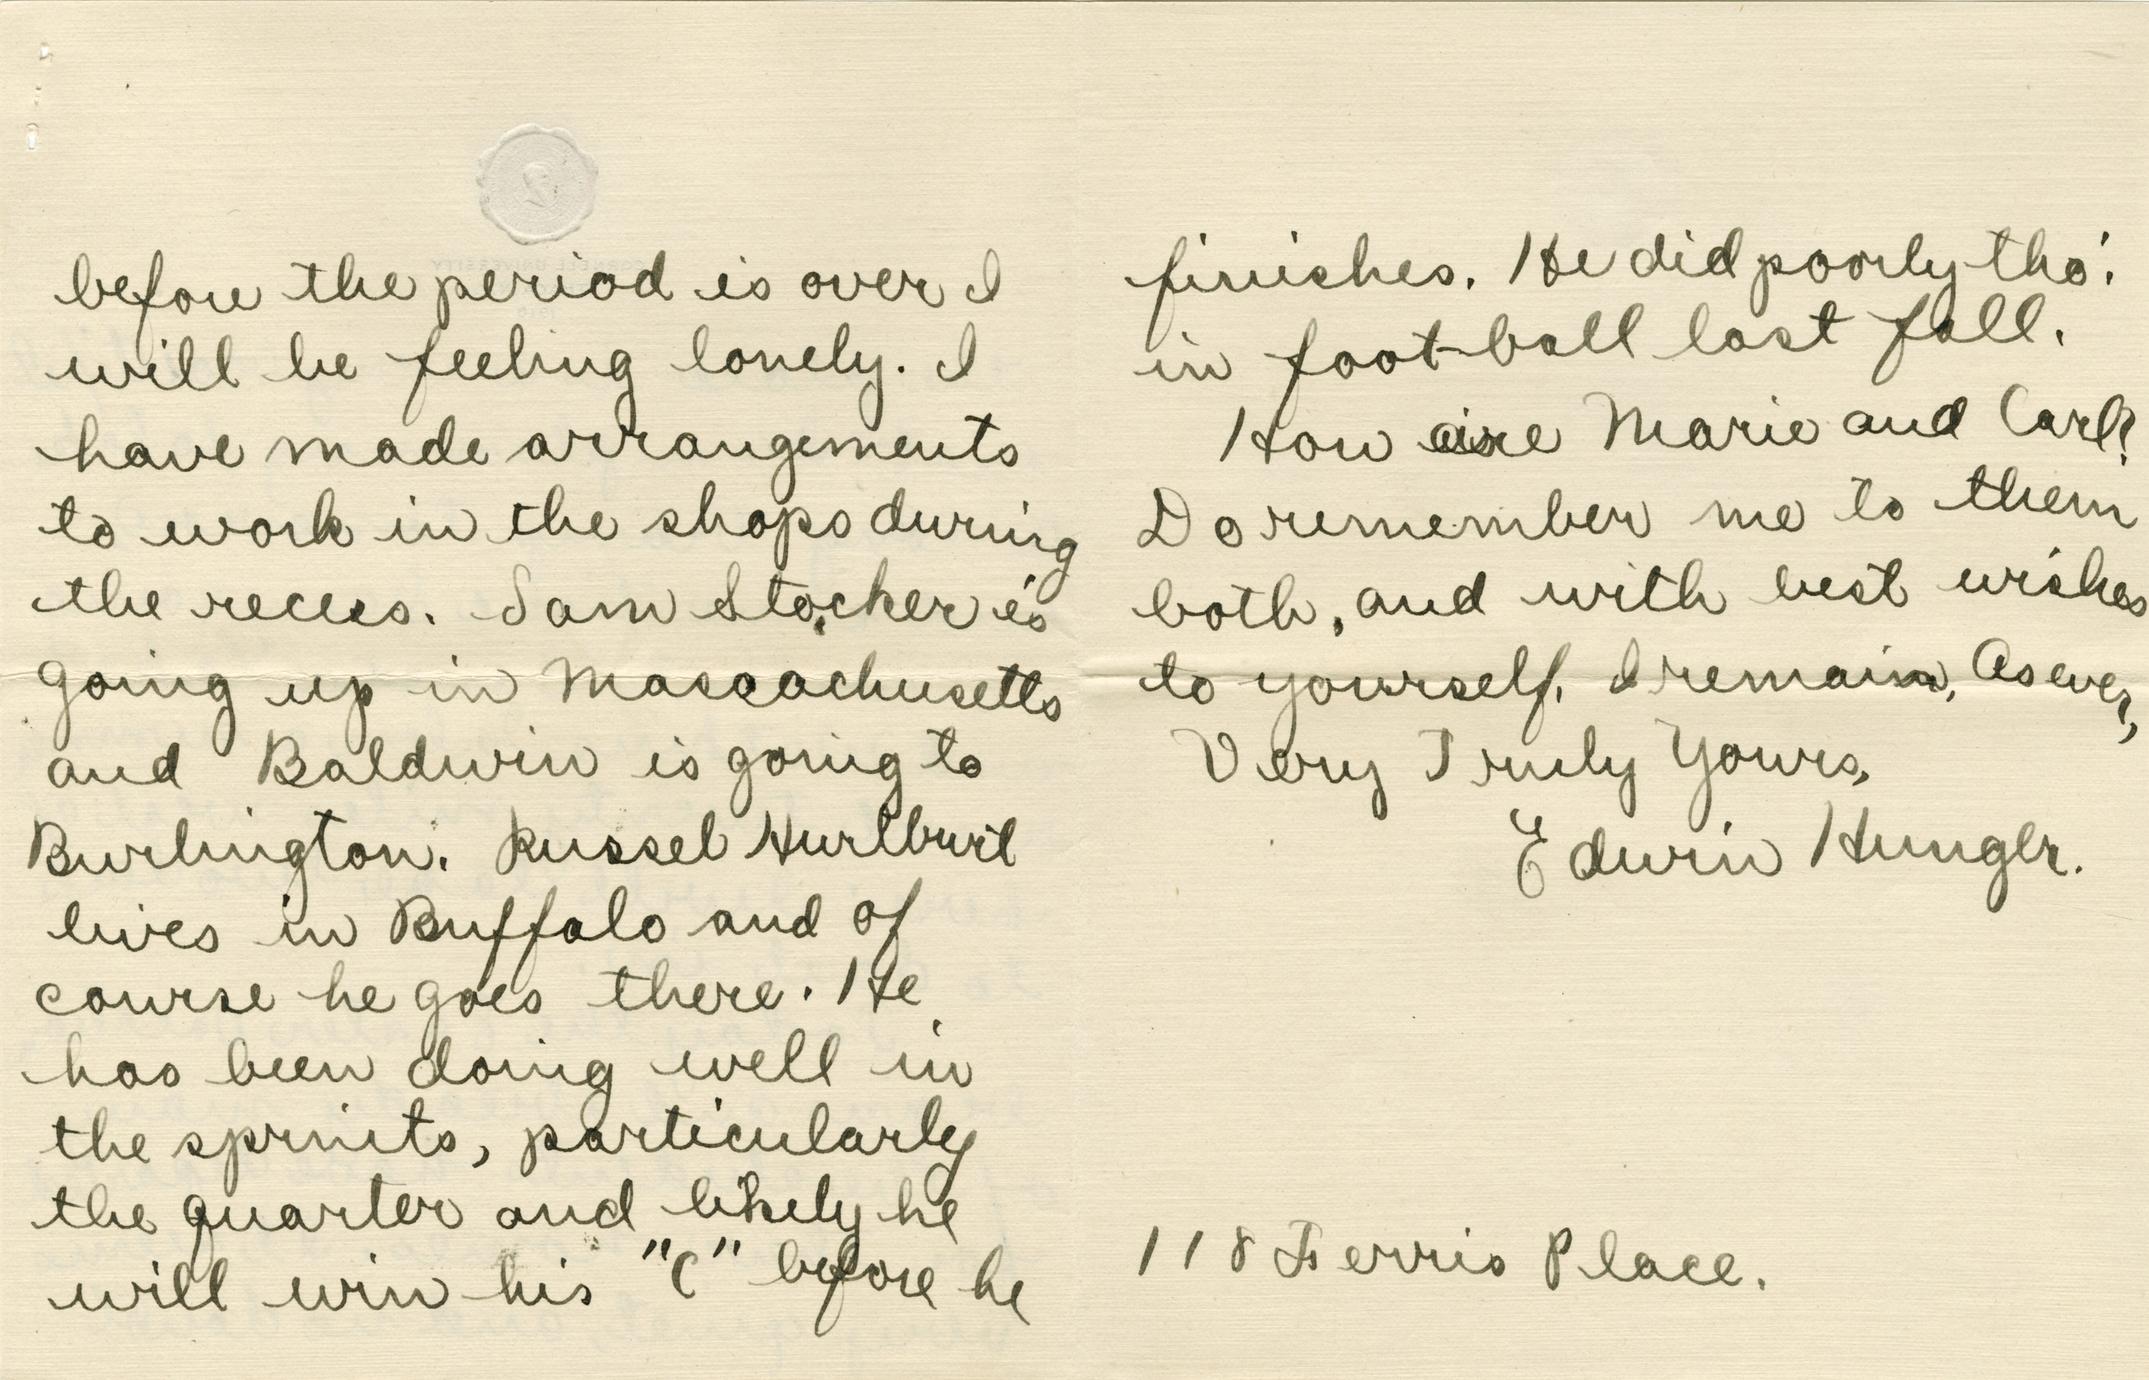 before the period is over I
will be feeling lonely. I
have made arrangements
to work in the shops during
the recess. Sam Stocker is
going up in Massachusetts
and Baldwin is going to
Burlington. Russel Hurlburt
lives in Buffalo and of
course he goes there. He
has been doing well in
the sprints, particularly
the quarter and likely he
will win his "C" before he
finishes. He did poorly tho'.
in foot-ball last fall.
How are Marie and Carl?
Do remember me to them
both, and with best wishes
to yourself, I remain, As ever,
Very Truly Yours,
Edwin Hunger.
118 Ferris Place.